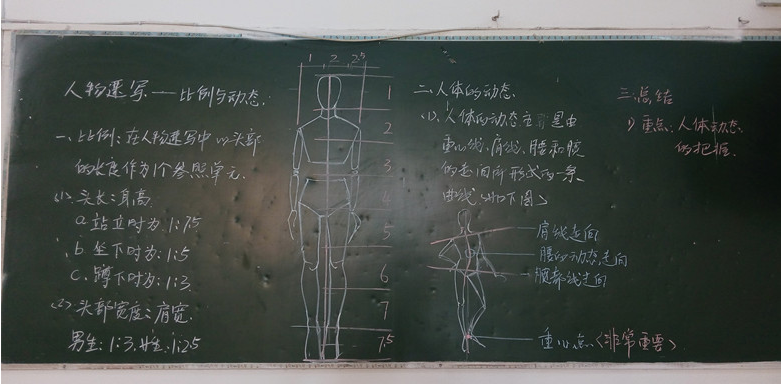 人物速写——比例与动态.
一、比例:在人物速写中以头部
的长度作为1个参照单元.
(1).头长:身高.
a.站立时为 1:7.5
b.坐下时为:1:5
C.蹲下时为:1:3.
(2).头部宽度:肩宽.
男生:1:3.女生:1:2.5
1 2 2.5
1
2
3
4
5
6
7
7.5
二、人体的动态.
(1).人体的动态主 是由
重心线、肩线、腰和
的走向所形成的一条
曲线.(如下图)
肩线走向
腰的动态走向
腿部线走向
重心点.(非常重要)
三.总结
1)重点:人体动态
的把握.